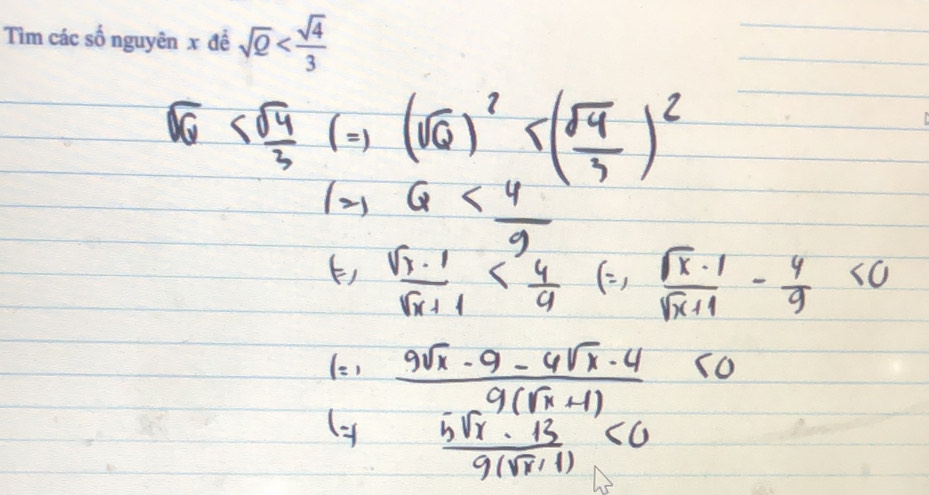 Tìm các số nguyên x để √Q < √4/3
√Q < √4/3 (=) (√Q)² < (√4/3)²
(=) Q < 4/9
(=) (√x - 1)/(√x + 1) < 4/9 (=) (√x - 1)/(√x + 1) - 4/9 < 0
(=) (9√x - 9 - 4√x - 4)/(9(√x + 1)) < 0
(=) (5√x - 13)/(9(√x + 1)) < 0